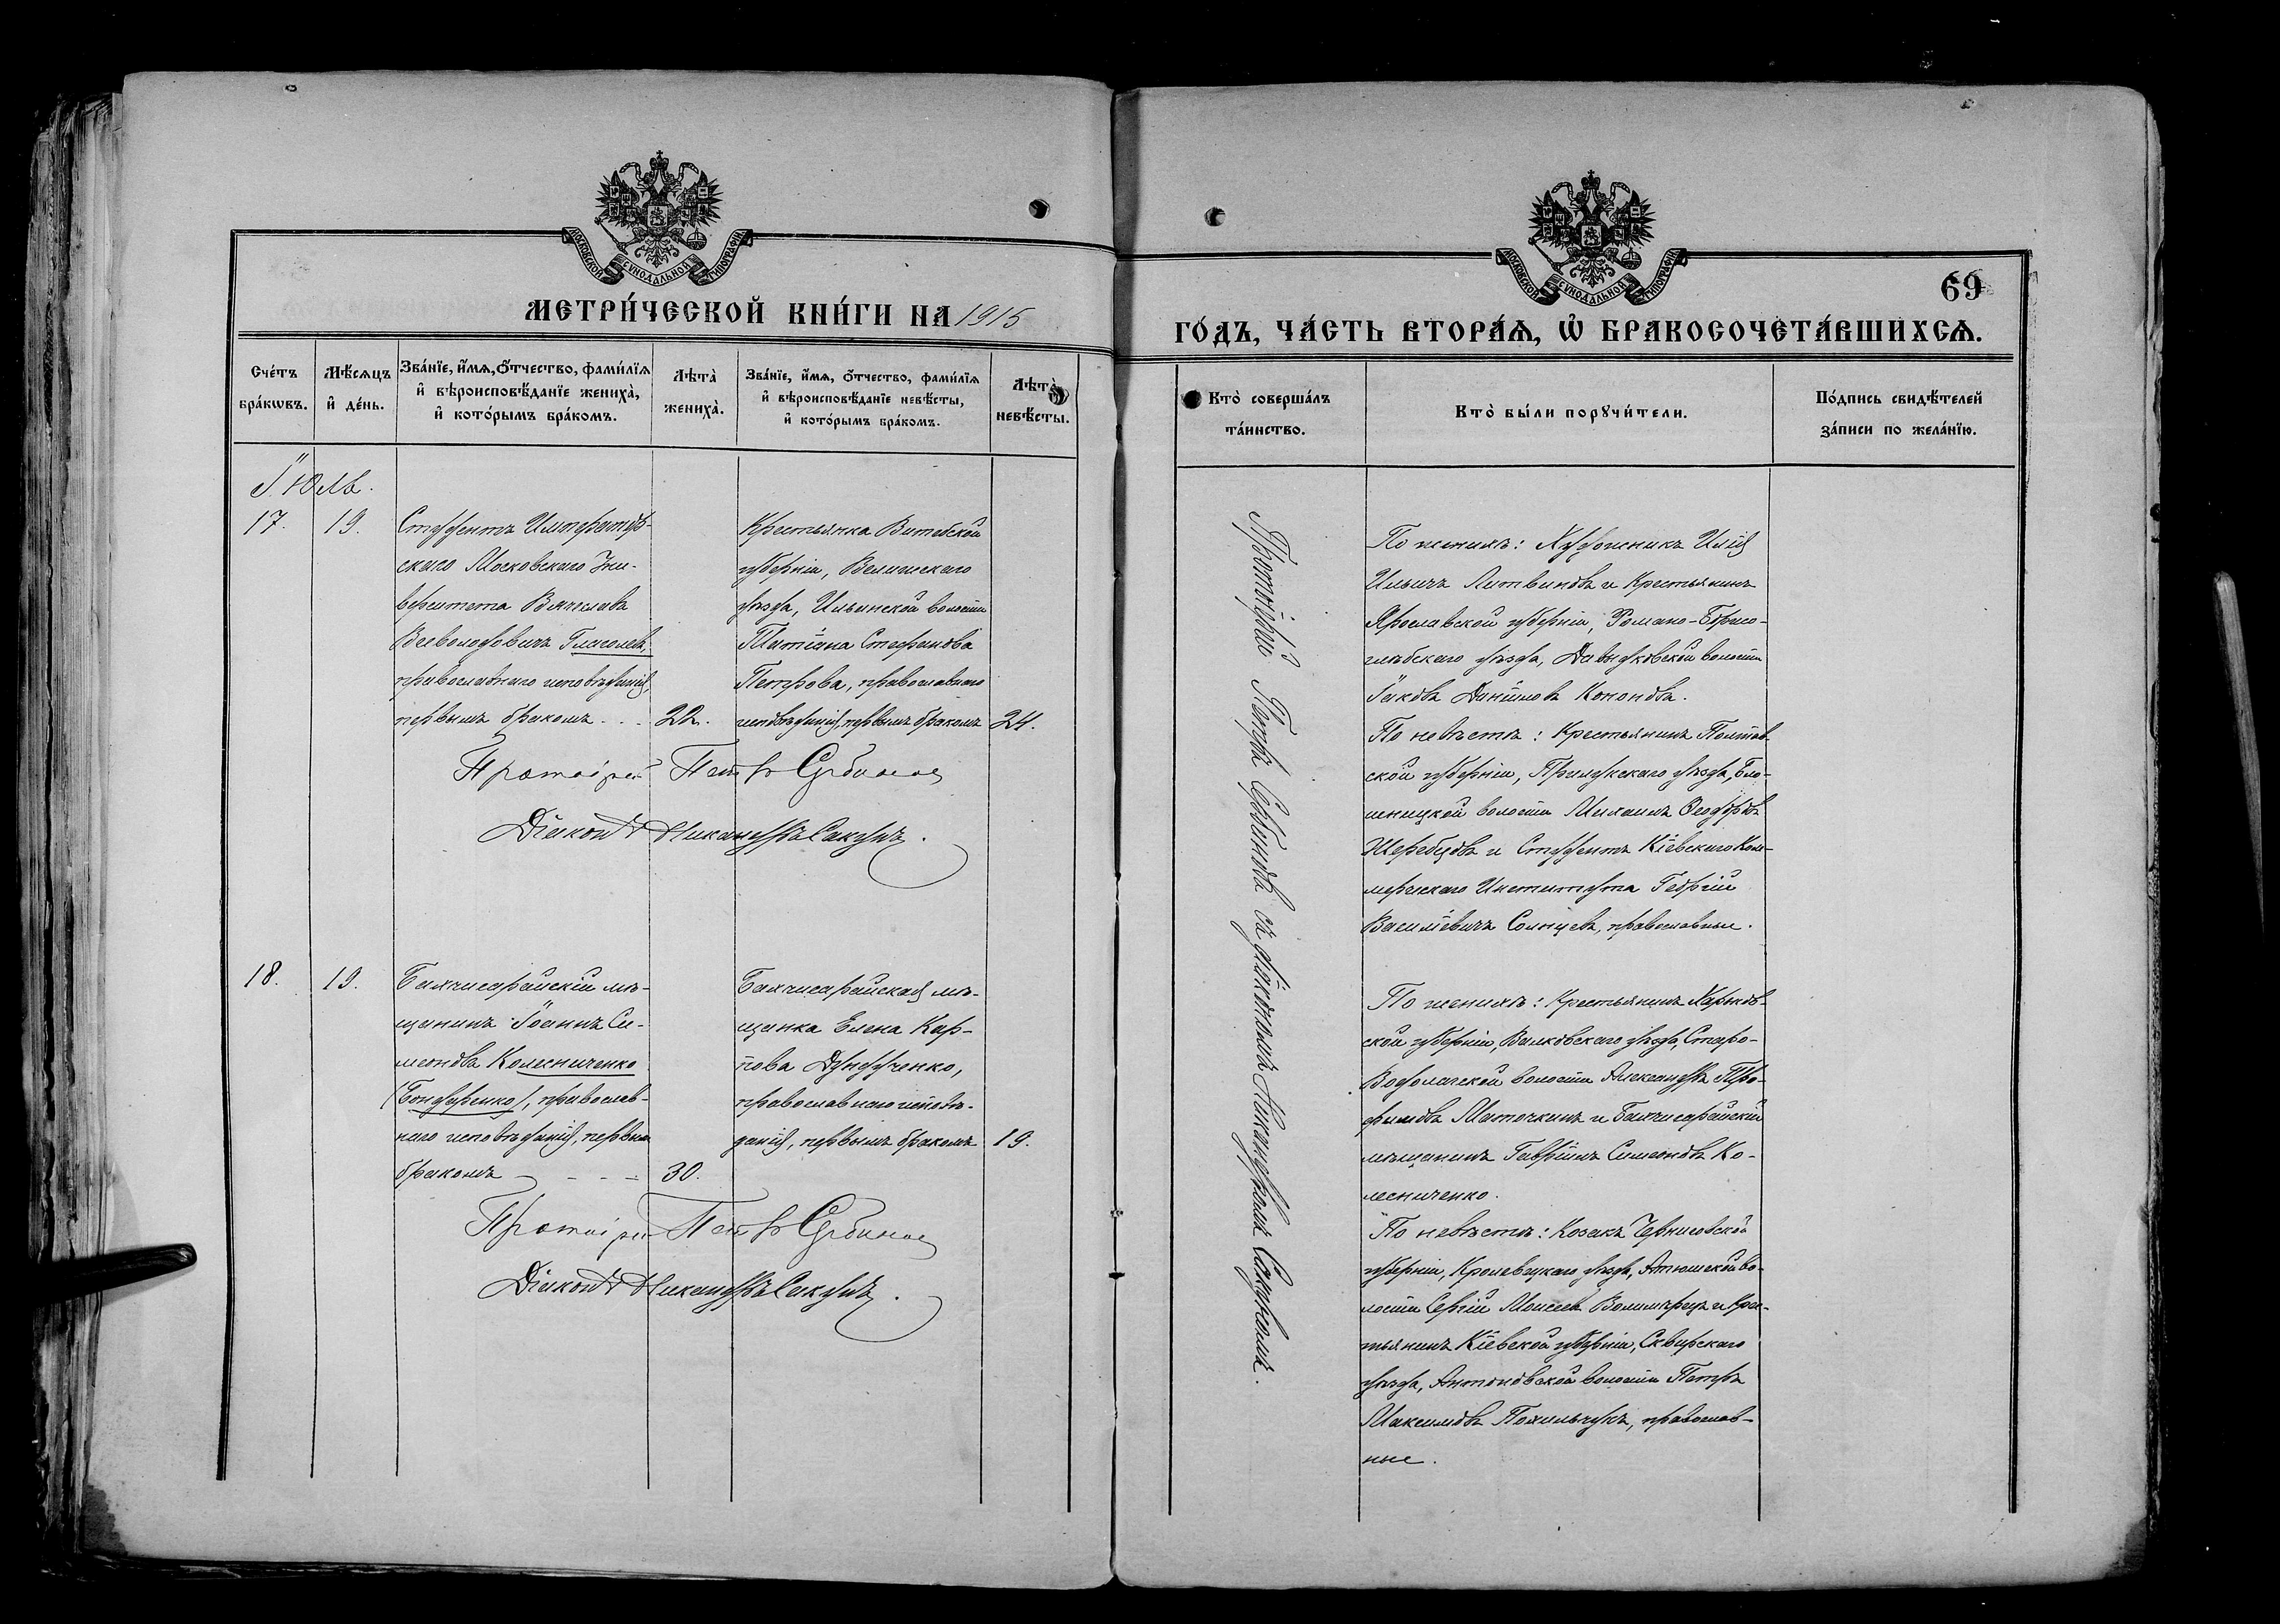 МОСКОВСКОЙ СУНОДАЛЬНОЙ ТИПОГРАФІИ
МЕТРИ́ЧЕСКОЙ КНИ́ГИ НА 1915
Сче́тъ бра́кωвъ.
Мѣ́сѧцъ и҆ де́нь.
Зва́нїе, и҆́мѧ, ѻ҆́тчество, фами́лїѧ и҆ вѣроисповѣ́данїе жениха̀, и҆ кото́рымъ бра́комъ.
Лѣта̀ жениха̀.
Зва́нїе, и҆́мѧ, ѻ҆́тчество, фами́лїѧ и҆ вѣроисповѣ́данїе невѣ́сты, и҆ кото́рымъ бра́комъ.
Лѣта̀ невѣ́сты.
Іюль.
17.
19.
Студентъ Император-
скаго Московскаго Уни-
верситета Вячеславъ
Всеволодовичъ Глаголевъ,
православнаго исповѣданія,
первымъ бракомъ
22.
Крестьянка Витебской
губерніи, Велижскаго
уѣзда, Ильинской волости
Татіана Стефанова
Петрова, православнаго
исповѣданія, первымъ бракомъ
24.
Протоіерей Петръ Сербиновъ
Діаконъ Никандръ Сакунъ.
18.
19.
Бахчисарайскій мѣ-
щанинъ Іоаннъ Си-
меоновъ Колесниченко
(Бондаренко), православ-
наго исповѣданія, первымъ
бракомъ
30.
Бахчисарайская мѣ-
щанка Елена Кар-
пова Дундученко,
православнаго исповѣ-
данія, первымъ бракомъ
19.
Протоіерей Петръ Сербиновъ
Діаконъ Никандръ Сакунъ.
МОСКОВСКОЙ СУНОДАЛЬНОЙ ТИПОГРАФІИ
69
ГО́ДЪ, ЧА́СТЬ ВТОРА́Ѧ, Ѡ҆ БРАКОСОЧЕТА́ВШИХСѦ.
Кто̀ соверша́лъ та́инство.
Кто̀ бы́ли порꙋчи́тели.
По́дпись свидѣ́телей за́писи по жела́нїю.
Протоіерей Петръ Сербиновъ съ діакономъ Никандромъ Сакуномъ.
По женихѣ: Художникъ Илія
Ильичъ Литвиновъ и Крестьянинъ
Ярославской губерніи, Романо-Борисо-
глѣбскаго уѣзда, Давыдковской волости
Іаковъ Даніиловъ Кононовъ.
По невѣстѣ: Крестьянинъ Полтав-
ской губерніи, Прилукскаго уѣзда,
волости Михаилъ Ѳеодоровъ
Жеребцовъ и Студентъ Кіевскаго Ком-
мерческаго Института Георгій
Василіевичъ Солнцевъ, православные.
По женихѣ: Крестьянинъ Харьков-
ской губерніи, Валковскаго уѣзда, Старо-
Водолажской волости Александръ Тро-
фимовъ Маточкинъ и Бахчисарайскій
мѣщанинъ Гавріилъ Симеоновъ Ко-
лесниченко.
По невѣстѣ: Козакъ Черниговской
губерніи, Кролевецкаго уѣзда, Атюшской во-
лости Сергій Моисеевъ и Крес-
тьянинъ Кіевской губерніи, Сквирскаго
уѣзда, Антоновской волости Петръ
Максимовъ Похильчукъ, православ-
ные.